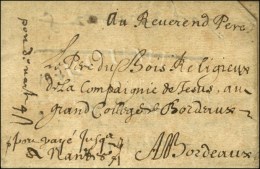 Au Reverend Pere
Le Pere du Bois Religieux
de La Compaignie de Jesus, au
grand College de Bordeaux
A Bordeaux
port payé jusqu'a
Nantes